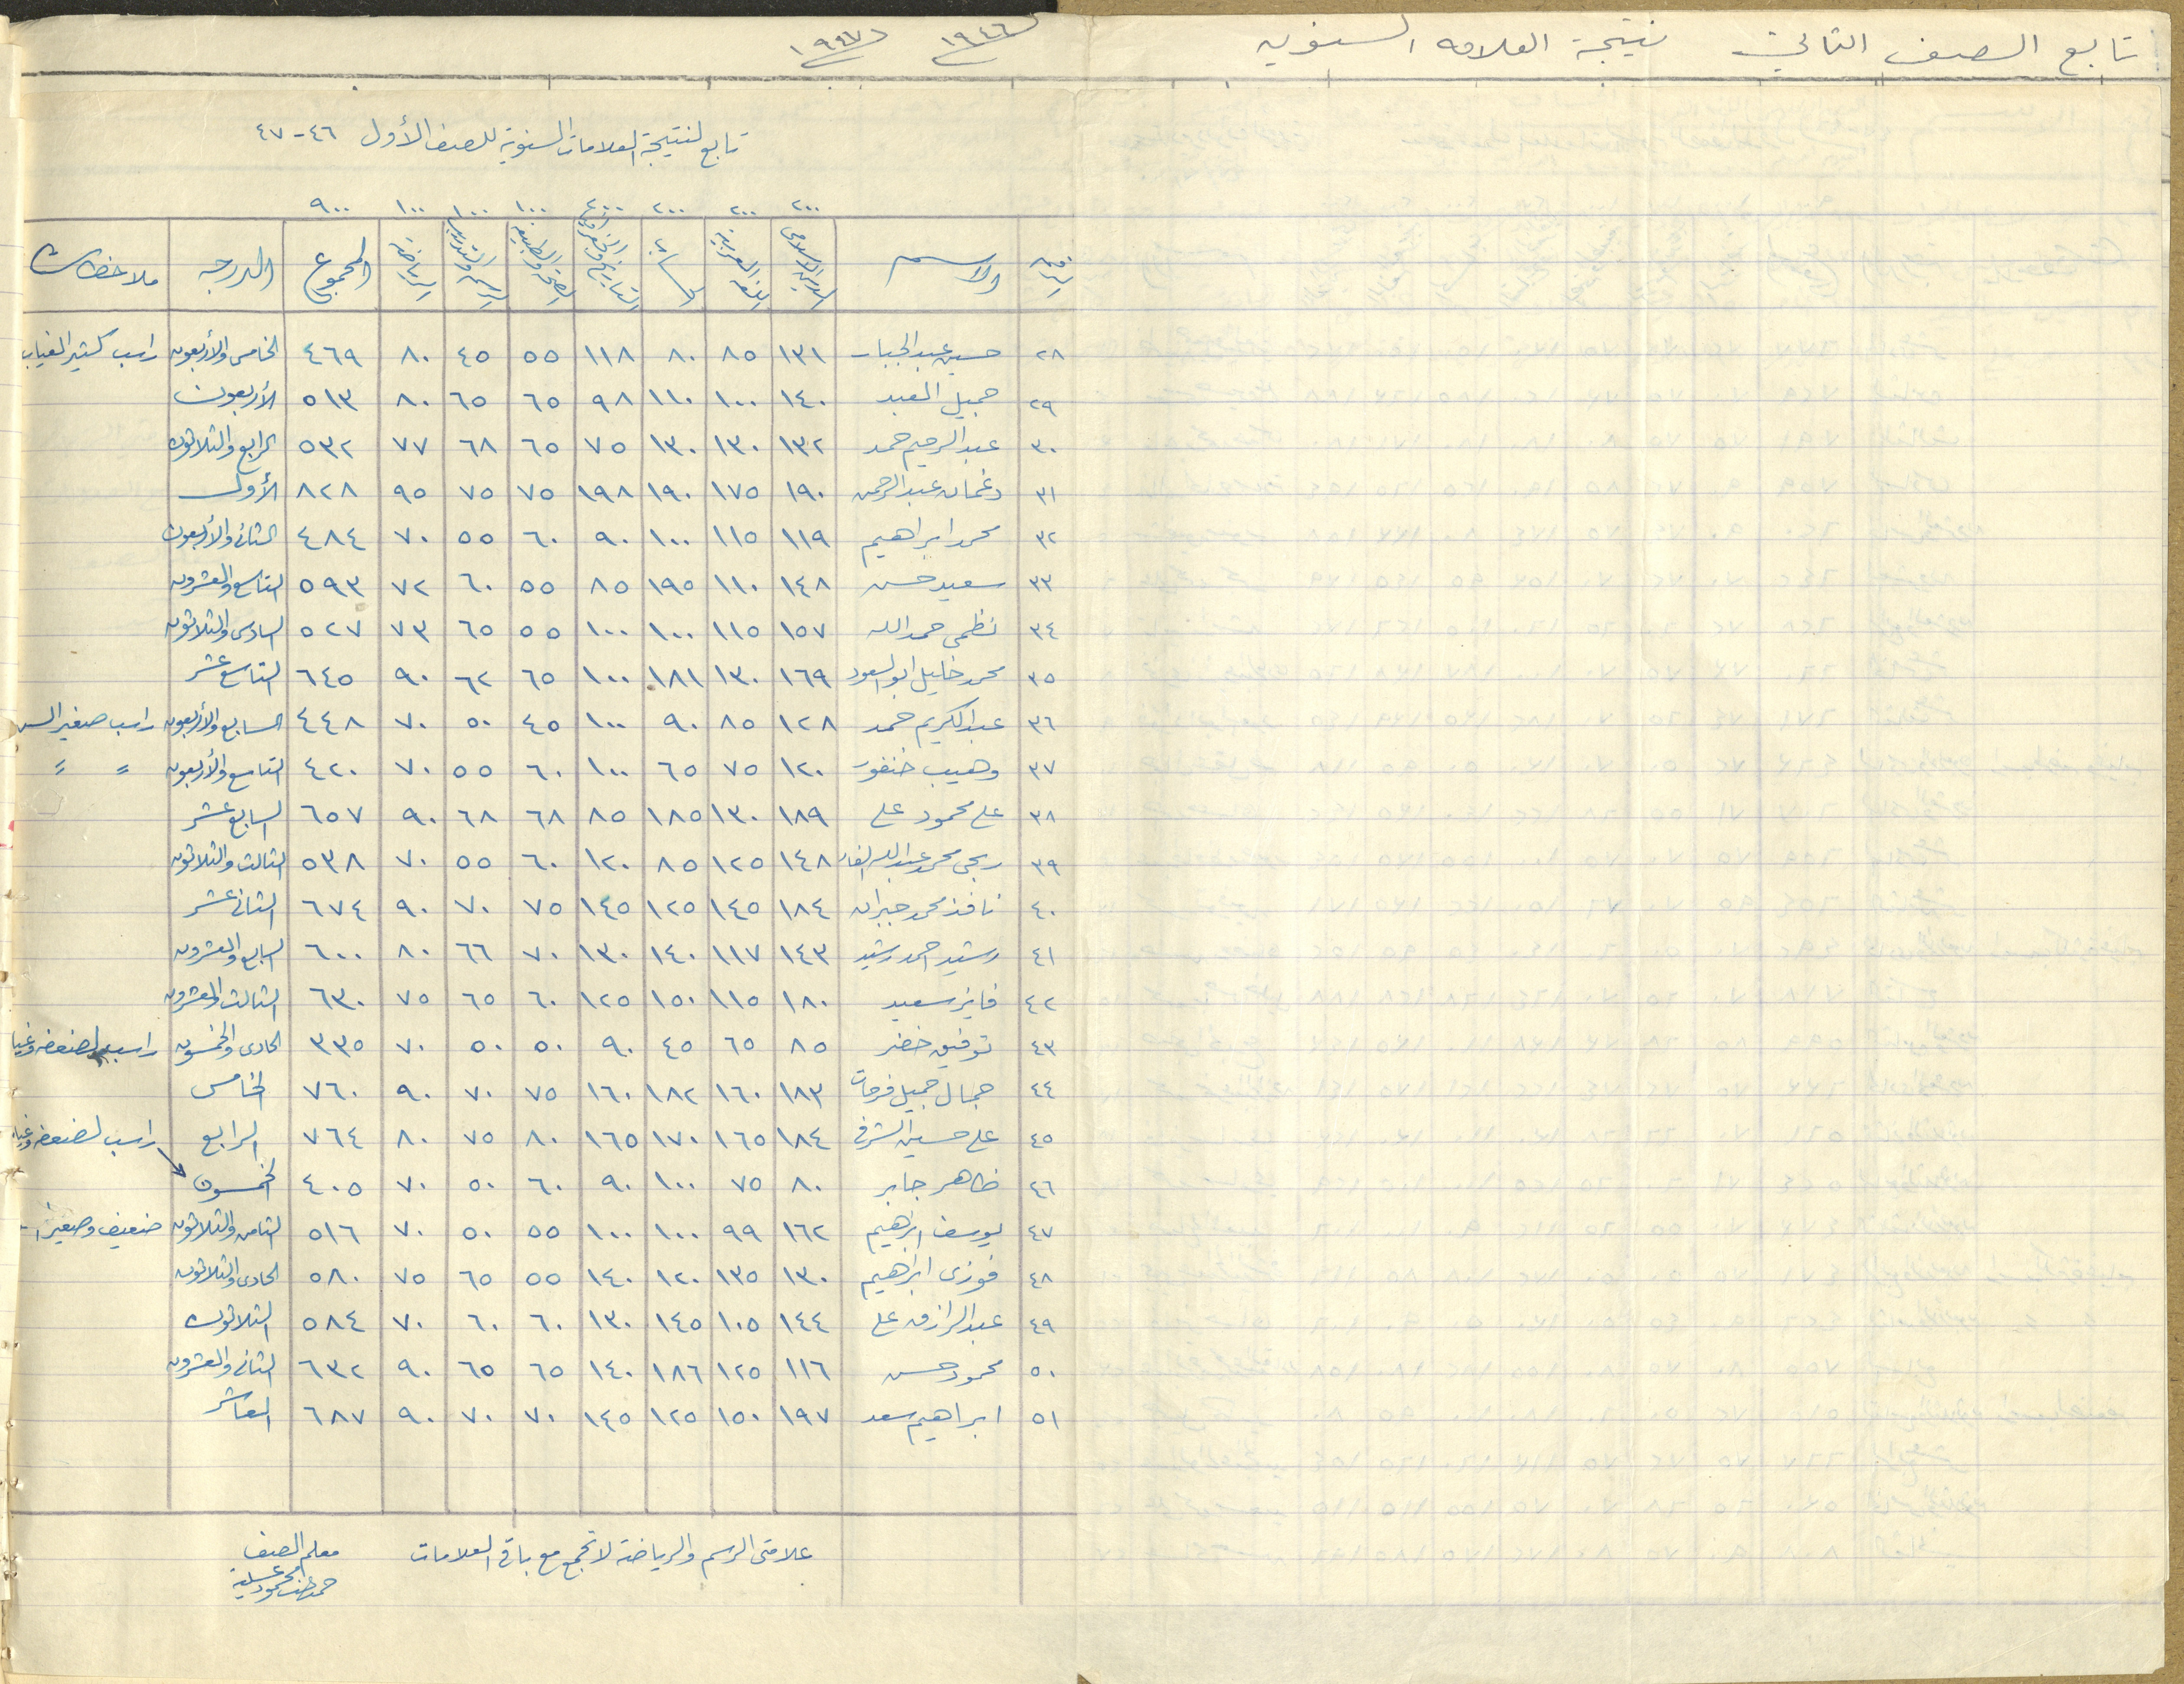 تابع الصف الثاني نتيجة العلامه السنويه ١٩٤٦ ١٩٤٧
تابع لنتيجة العلامات السنوية للصف الأول ٤٦-٤٧
٢٠٠ ٢٠٠ ٢٠٠ ٤٠٠ ١٠٠ ١٠٠ ١٠٠ ٩٠٠
الرقم الاسم الدين الاسلامي اللغة العربية حساب التاريخ والجغرافيا الصحة والطبيعة الرسم رياضة المجموع الدرجه ملاحظات
٢٨ حسين عبد الجبار ١٣١ ٨٥ ٨٠ ١١٨ ٥٥ ٤٥ ٨٠ ٤٦٩ الخامس والأربعون راسب كثير الغياب
٢٩ جميل العبد ١٤٠ ١٠٠ ١١٠ ٩٨ ٦٥ ٦٥ ٨٠ ٥١٣ الأربعون
٣٠ عبد الرحيم حمد ١٣٢ ١٣٠ ١٣٠ ٧٥ ٦٥ ٦٨ ٧٧ ٥٣٢ الرابع والثلاثون
٣١ دغمان عبد الرحمن ١٩٠ ١٧٥ ١٩٠ ١٩٨ ٧٥ ٧٥ ٩٥ ٨٢٨ الأول
٣٢ محمد ابراهيم ١١٩ ١١٥ ١٠٠ ٩٠ ٦٠ ٥٥ ٧٠ ٤٨٤ الثاني والأربعون
٣٣ سعيد حسن ١٤٨ ١١٠ ١٩٥ ٨٥ ٥٥ ٦٠ ٧٢ ٥٩٣ التاسع والعشرون
٣٤ نظمي حمد الله ١٥٧ ١١٥ ١٠٠ ١٠٠ ٥٥ ٦٥ ٧٣ ٥٢٧ السادس والثلاثون
٣٥ محمد خليل ابو السعود ١٦٩ ١٣٠ ١٨١ ١٠٠ ٦٥ ٦٢ ٩٠ ٦٤٥ التاسع عشر
٣٦ عبد الكريم حمد ١٢٨ ٨٥ ٩٠ ١٠٠ ٤٥ ٥٠ ٧٠ ٤٤٨ السابع والأربعون راسب صغير السن
٣٧ وهيب خنفور ١٢٠ ٧٥ ٦٥ ١٠٠ ٦٠ ٥٥ ٧٠ ٤٢٠ التاسع والأربعون = =
٣٨ علي محمود علي ١٨٩ ١٣٠ ١٨٥ ٨٥ ٦٨ ٦٨ ٩٠ ٦٥٧ السابع عشر
٣٩ ربحي محمد عبد الله ١٤٨ ١٢٥ ٨٥ ١٢٠ ٦٠ ٥٥ ٧٠ ٥٣٨ الثالث والثلاثون
٤٠ نافذ محمد جبران ١٨٤ ١٤٥ ١٢٥ ١٤٥ ٧٥ ٧٠ ٩٠ ٦٧٤ الثاني عشر
٤١ رشيد احمد رشيد ١٤٣ ١١٧ ١٤٠ ١٣٠ ٧٠ ٦٦ ٨٠ ٦٠٠ السابع والعشرون
٤٢ فايز سعيد ١٨٠ ١١٥ ١٥٠ ١٢٥ ٦٠ ٦٥ ٧٥ ٦٣٠ الثالث والعشرون
٤٣ توفيق خضر ٨٥ ٦٥ ٤٥ ٩٠ ٥٠ ٥٠ ٧٠ ٣٣٥ الحادي والخمسون راسب لضعفه
٤٤ جمال جميل فرحات ١٨٣ ١٦٠ ١٨٢ ١٦٠ ٧٥ ٧٠ ٩٠ ٧٦٠ الخامس
٤٥ علي حسين الشرفي ١٨٤ ١٦٥ ١٧٠ ١٦٥ ٨٠ ٧٥ ٨٠ ٧٦٤ الرابع راسب لضعفه
٤٦ ظاهر جابر ٨٠ ٧٥ ١٠٠ ٩٠ ٦٠ ٥٠ ٧٠ ٤٠٥ الخمسون
٤٧ يوسف ابراهيم ١٦٢ ٩٩ ١٠٠ ١٠٠ ٥٥ ٥٠ ٧٠ ٥١٦ الثامن والثلاثون ضعيف وصغير
٤٨ فوزي ابراهيم ١٣٠ ١٣٥ ١٢٠ ١٤٠ ٥٥ ٦٥ ٧٥ ٥٨٠ الحادي والثلاثون
٤٩ عبد الرازق علي ١٤٤ ١٠٥ ١٤٥ ١٣٠ ٦٠ ٦٠ ٧٠ ٥٨٤ الثلاثون
٥٠ محمود حسن ١١٦ ١٢٥ ١٨٦ ١٤٠ ٦٥ ٦٥ ٩٠ ٦٣٢ الثاني والعشرون
٥١ ابراهيم سعد ١٩٧ ١٥٠ ١٢٥ ١٤٥ ٧٠ ٧٠ ٩٠ ٦٨٧ العاشر
علامتي الرسم والرياضة لا تجمع مع باقي العلامات
معلم الصف